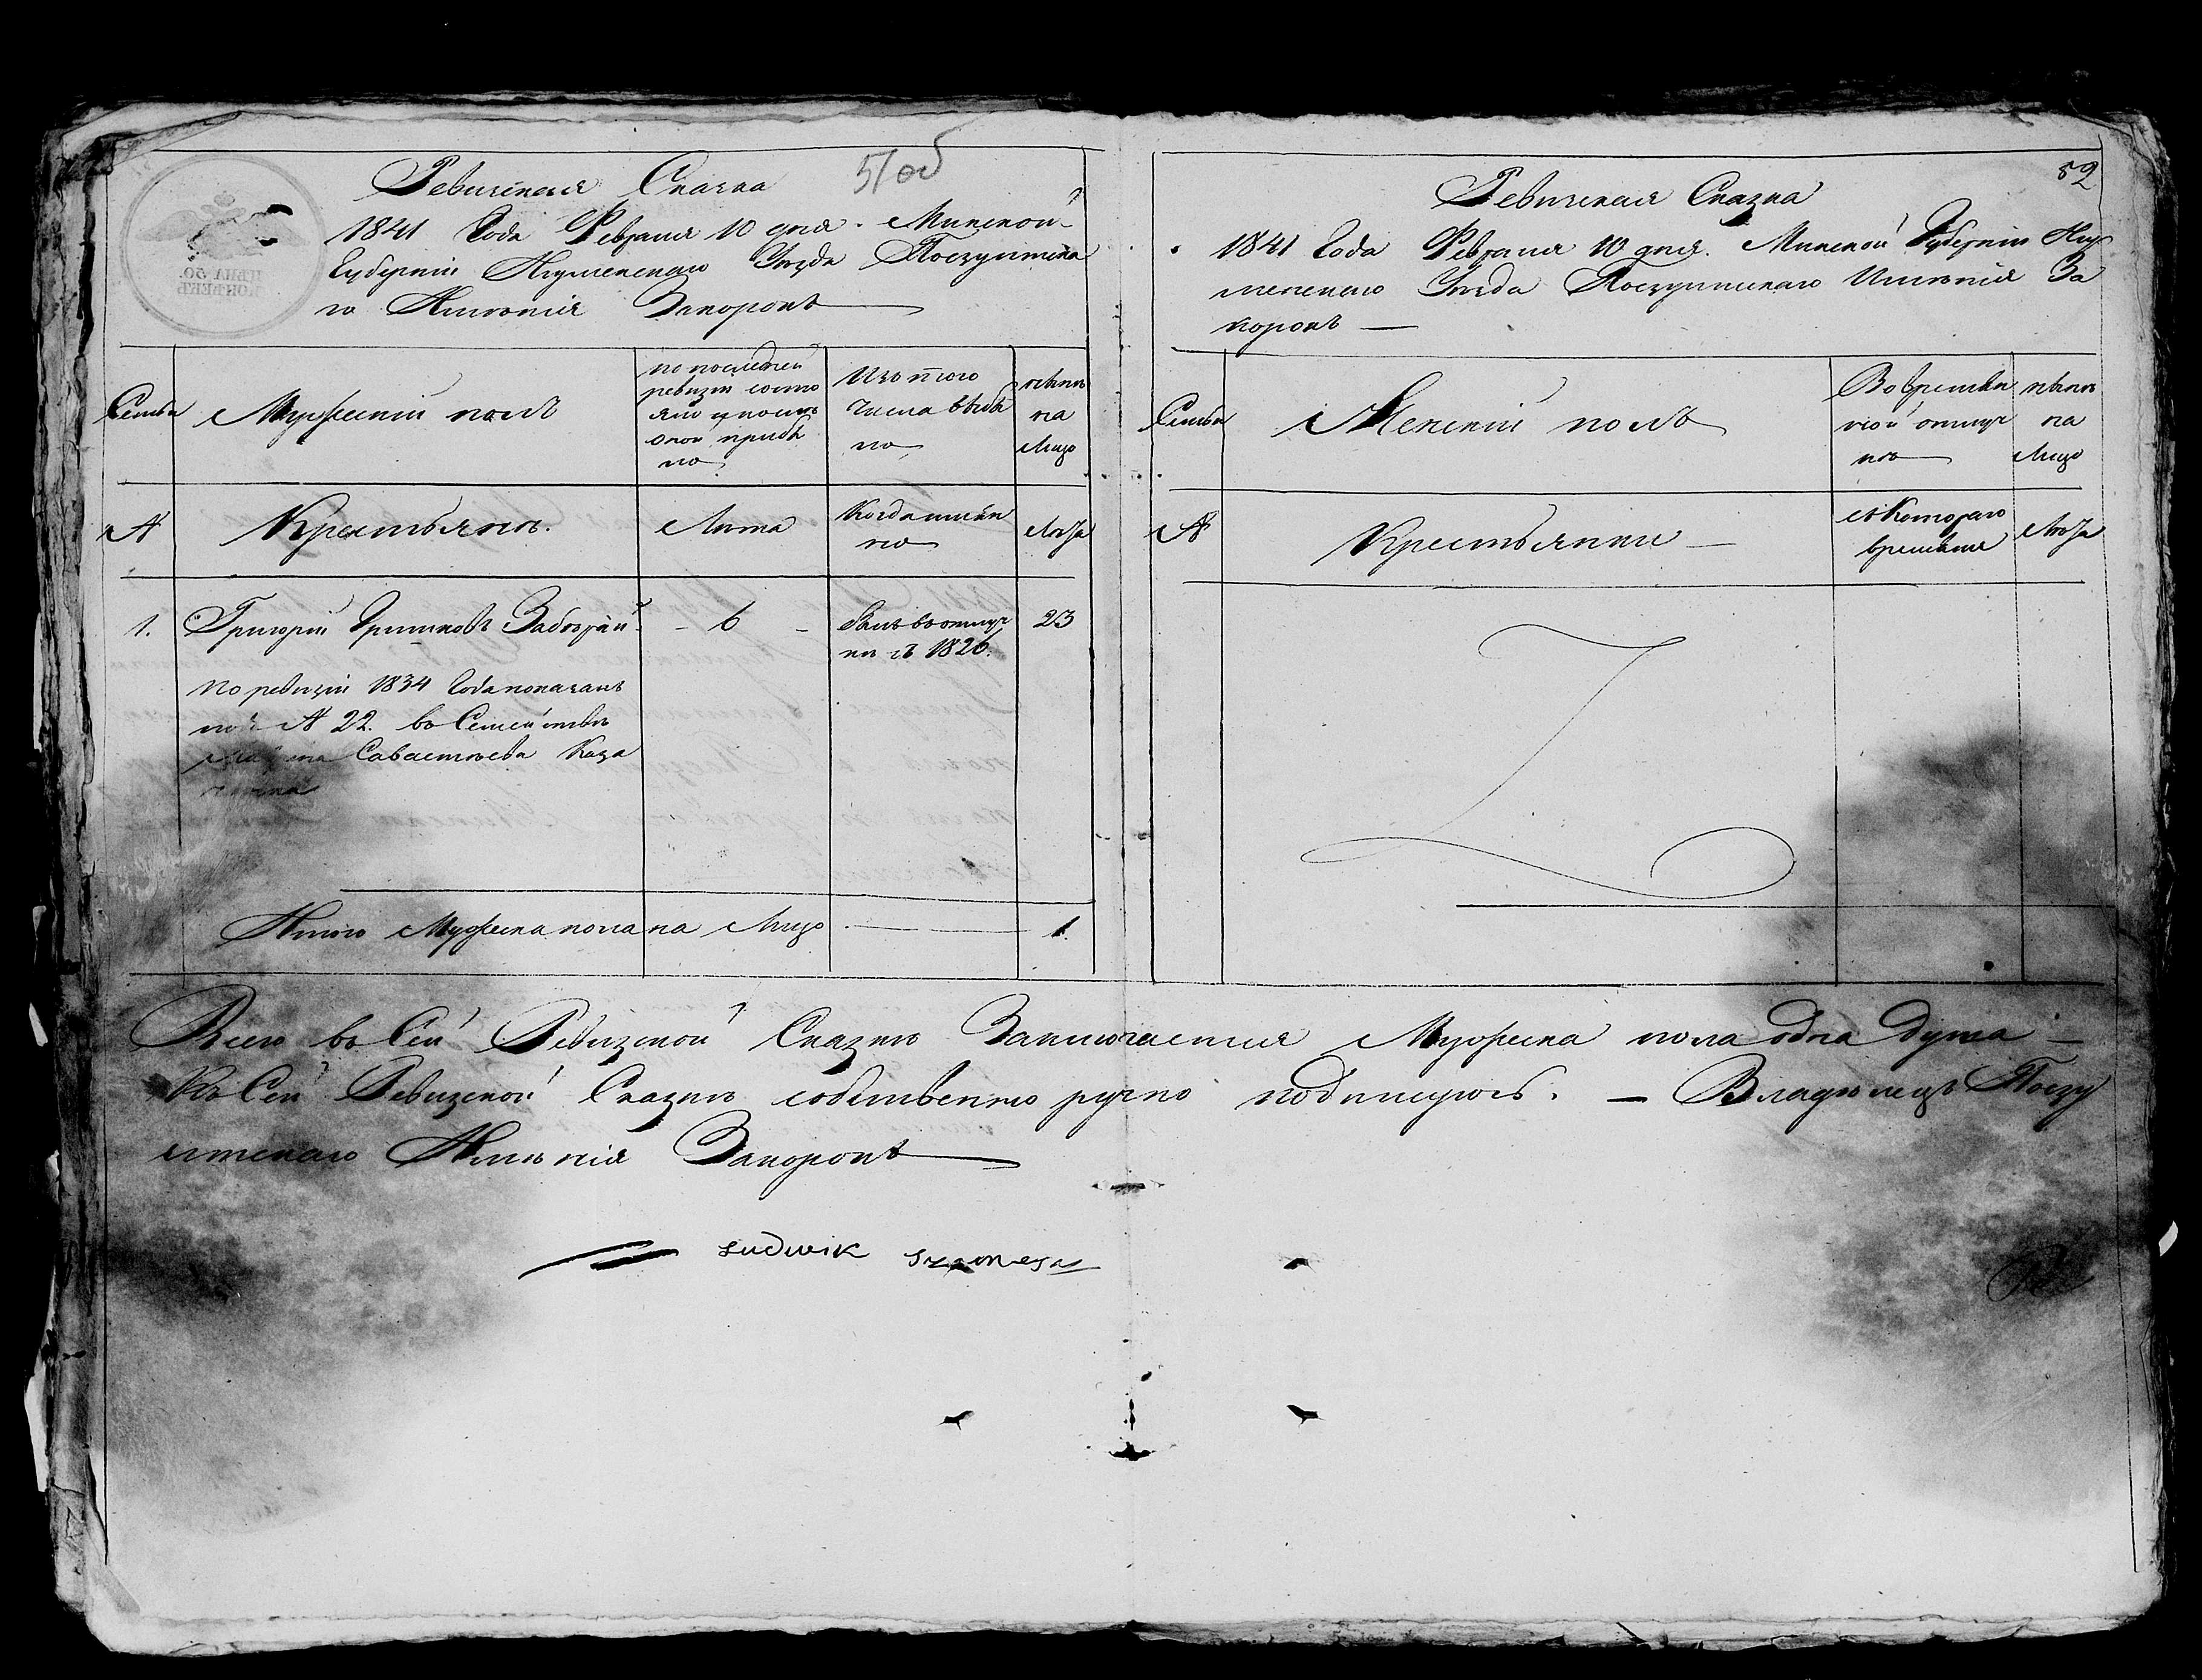 51об
Ревизская Сказка
1841 Года Февраля 10 дня. Минской
Губерніи Игуменскаго Уѣзда Поезуитска
го Имѣнія Закоронъ
Семьи
Мужескій полъ
по последней
ревизіи состо
яло и после
оной прибы
ло
Изъ того
числа выбы
ло
нынѣ
на
Лицо
№
Крестьянѣ.
Лѣта
Когда имен
но
Лѣта
1.
Григорій
6
былъ въ отлуч
кѣ съ 1826.
23
По ревизіи 1834 Года показанъ
№ 22. въ Семействѣ
Савастѣева
Итого Мужеска пола на Лицо
1.
52
Ревизская Сказка
1841 Года Февраля 10 дня. Минской Губерніи Игу
менскаго Уѣзда Поезуитскаго Имѣнія За
коронъ
Семьи
Женскій полъ
Во времен
ной отлуч
кѣ
нынѣ
на
Лицо
№
Крестьянки
съ Котораго
времени
Лѣта
Всего въ Сей Ревизской Сказкѣ Заключается Мужеска пола одна душа
Къ Сей Ревизской Сказкѣ собственно ручно подпишуюсь. — Владѣлецъ Поезу
итскаго Имѣнія Закоронъ
Ludwik